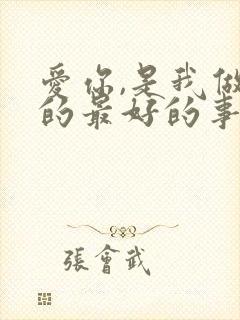 爱你,是我做
的最好的事
張會武